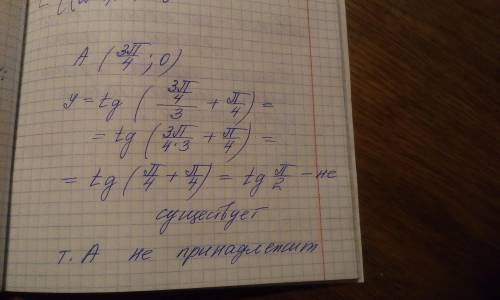 A (3π/4; 0)
y = tg ((3π/4)/3 + π/4) =
= tg (3π/4·3 + π/4) =
= tg (π/4 + π/4) = tg π/2 - не
существует
т. А не принадлежит